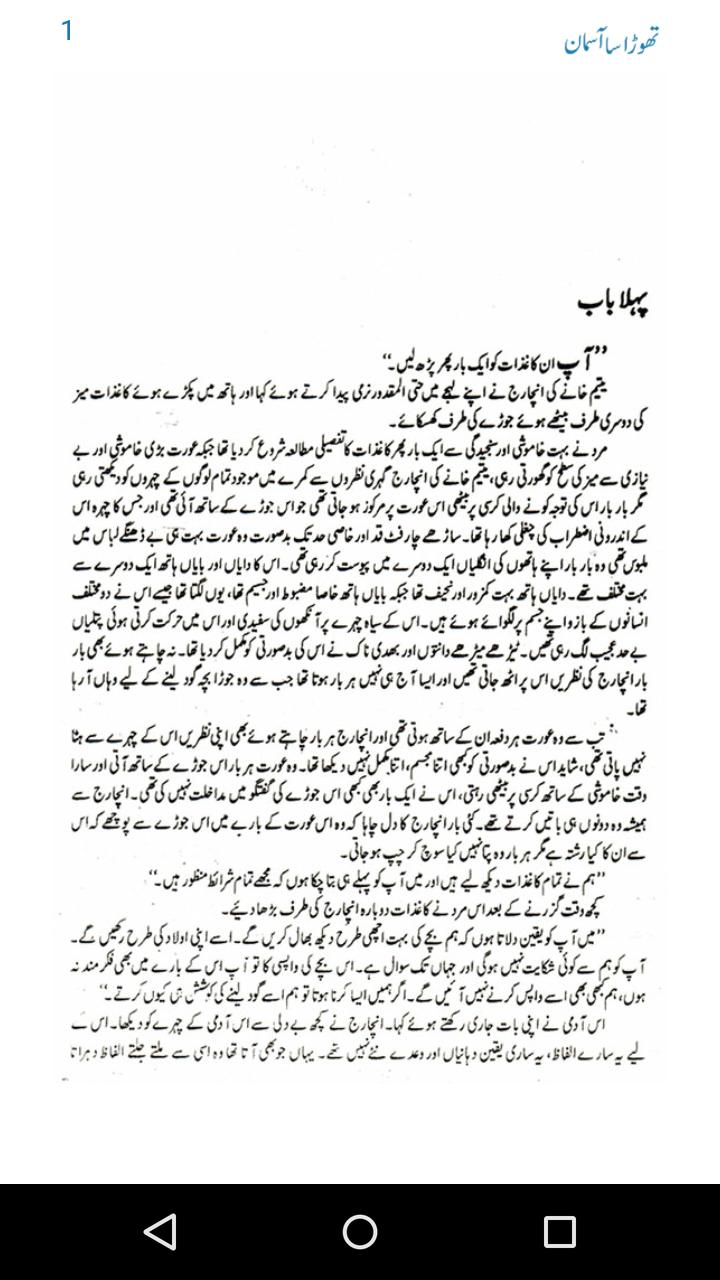 1
تھوڑا سا آسمان
پہلا باب
’’آپ ان کاغذات کو ایک بار پھر پڑھ لیں۔‘‘
یتیم خانے کی انچارج نے اپنے لہجے میں حتی المقدور نرمی پیدا کرتے ہوئے کہا اور ہاتھ میں پکڑے ہوئے کاغذات میز
کی دوسری طرف بیٹھے ہوئے جوڑے کی طرف کھسکائے۔
مرد نے بہت خاموشی اور سنجیدگی سے ایک بار پھر کاغذات کا تفصیلی مطالعہ شروع کر دیا تھا جبکہ عورت بڑی خاموشی اور بے
نیازی سے میز کی سطح کو گھورتی رہی، یتیم خانے کی انچارج گہری نظروں سے کمرے میں موجود تمام لوگوں کے چہروں کو دیکھتی رہی
مگر بار بار اس کی توجہ کونے والی کرسی پر بیٹھی اس عورت پر مرکوز ہو جاتی تھی جو اس جوڑے کے ساتھ آئی تھی اور جس کا چہرہ اس
کے اندرونی اضطراب کی چغلی کھا رہا تھا۔ ساڑھے چار فٹ قد اور خاصی حد تک بدصورت وہ عورت بہت ہی بے ڈھنگے لباس میں
ملبوس تھی وہ بار بار اپنے ہاتھوں کی انگلیاں ایک دوسرے میں پیوست کر رہی تھی۔ اس کا دایاں اور بایاں ہاتھ ایک دوسرے سے
بہت مختلف تھے۔ دایاں ہاتھ بہت کمزور اور نحیف تھا جبکہ بایاں ہاتھ خاصا مضبوط اور جسیم تھا، یوں لگتا تھا جیسے اس نے دو مختلف
انسانوں کے بازو اپنے جسم پر لگوائے ہوئے ہیں۔ اس کے سیاہ چہرے پر آنکھوں کی سفیدی اور اس میں حرکت کرتی ہوئی پتلیاں
بے حد عجیب لگ رہی تھیں۔ ٹیڑھے میڑھے دانتوں اور بھدی ناک نے اس کی بدصورتی کو مکمل کر دیا تھا۔ نہ چاہتے ہوئے بھی بار
بار انچارج کی نظریں اس پر اٹھ جاتی تھیں اور ایسا آج ہی نہیں ہر بار ہوتا تھا جب سے وہ جوڑا بچہ گود لینے کے لیے وہاں آ رہا
تھا۔
تب سے وہ عورت ہر دفعہ ان کے ساتھ ہوتی تھی اور انچارج ہر بار چاہتے ہوئے بھی اپنی نظریں اس کے چہرے سے ہٹا
نہیں پاتی تھی، شاید اس نے بدصورتی کو کبھی اتنا مجسم، اتنا مکمل نہیں دیکھا تھا۔ وہ عورت ہر بار اس جوڑے کے ساتھ آتی اور سارا
وقت خاموشی کے ساتھ کرسی پر بیٹھی رہتی، اس نے ایک بار بھی کبھی اس جوڑے کی گفتگو میں مداخلت نہیں کی تھی۔ انچارج سے
ہمیشہ وہ دونوں ہی باتیں کرتے تھے۔ کئی بار انچارج کا دل چاہا کہ وہ اس عورت کے بارے میں اس جوڑے سے پوچھے کہ اس
سے ان کا کیا رشتہ ہے مگر ہر بار وہ پتا نہیں کیا سوچ کر چپ ہو جاتی۔
’’ہم نے تمام کاغذات دیکھ لیے ہیں اور میں آپ کو پہلے ہی بتا چکا ہوں کہ مجھے تمام شرائط منظور ہیں۔‘‘
کچھ وقت گزرنے کے بعد اس مرد نے کاغذات دوبارہ انچارج کی طرف بڑھا دیئے۔
’’میں آپ کو یقین دلاتا ہوں کہ ہم بچے کی بہت اچھی طرح دیکھ بھال کریں گے۔ اسے اپنی اولاد کی طرح رکھیں گے۔
آپ کو ہم سے کوئی شکایت نہیں ہوگی اور جہاں تک سوال ہے۔ اس بچے کی واپسی کا تو آپ اس کے بارے میں بھی فکر مند نہ
ہوں، ہم کبھی بھی اسے واپس کرنے نہیں آئیں گے۔ اگر ہمیں ایسا کرنا ہوتا تو ہم اسے گود لینے کی کوشش ہی کیوں کرتے۔‘‘
اس آدمی نے اپنی بات جاری رکھتے ہوئے کہا۔ انچارج نے کچھ بے دلی سے اس آدمی کے چہرے کو دیکھا۔ اس کے
لیے یہ سارے الفاظ، یہ ساری یقین دہانیاں اور وعدے نئے نہیں تھے۔ یہاں جو بھی آتا تھا وہ اسی سے ملتے جلتے الفاظ دہراتا